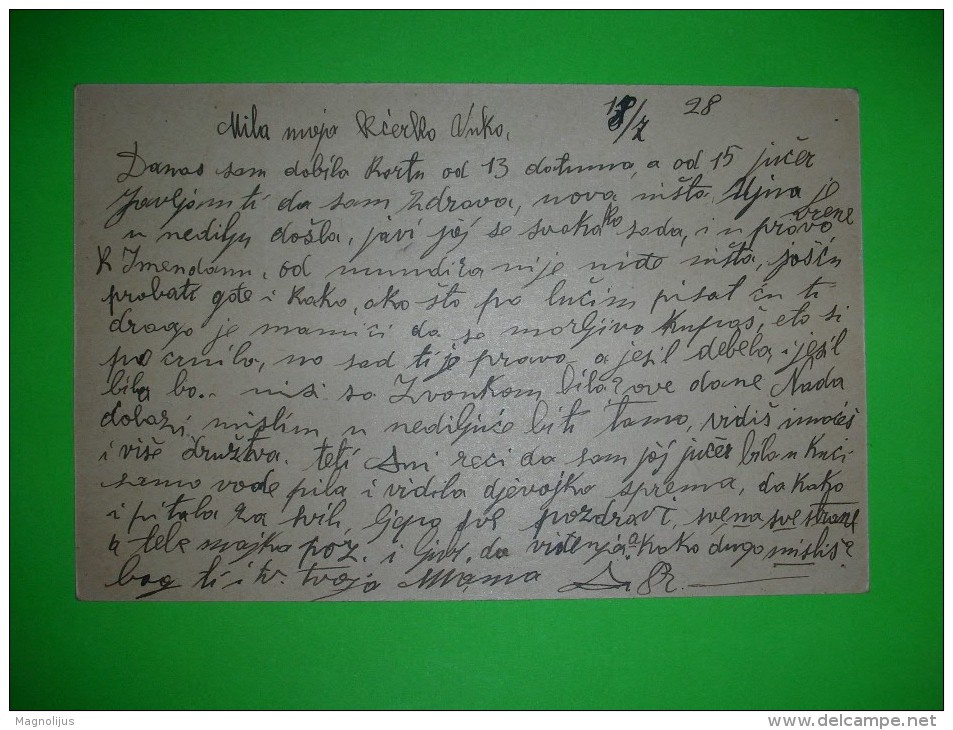 18/7 28
Mila moja kćerko Vuko,
Danas sam dobila kartu od 13 datuma, a od 15 jučer
Javljam ti da sam zdrava, nova ništa. Ujna je
u nedilju došla, javi joj se svakako sada, i u pravo vrene
k Imendanu, od mundira nije niđe ništa, jošću
probati gote i kako, ako što po lučim pisat ću ti
drago je mamici da se marljivo kupaš, eto si
po crnila, no sad ti je pravo a jesil debela i jesil
bila bo.. nisi sa Zvonkom bila ove dane Nada
dolazi, mislim u nedilju će biti tamo, vidiš imaćeš
i više društva. teti Ani reci da sam joj jučer bila u kući
samo vode pila i vidila djevojka sprema, da kako
i pitala za svih, ljepo sve pozdravi, sve na sve strane
a tebe majka poz. i ljub. do viđenja a kako dugo misliš
bog ti i tv. tvoja Mama
Magnolijus
www.delcampe.net